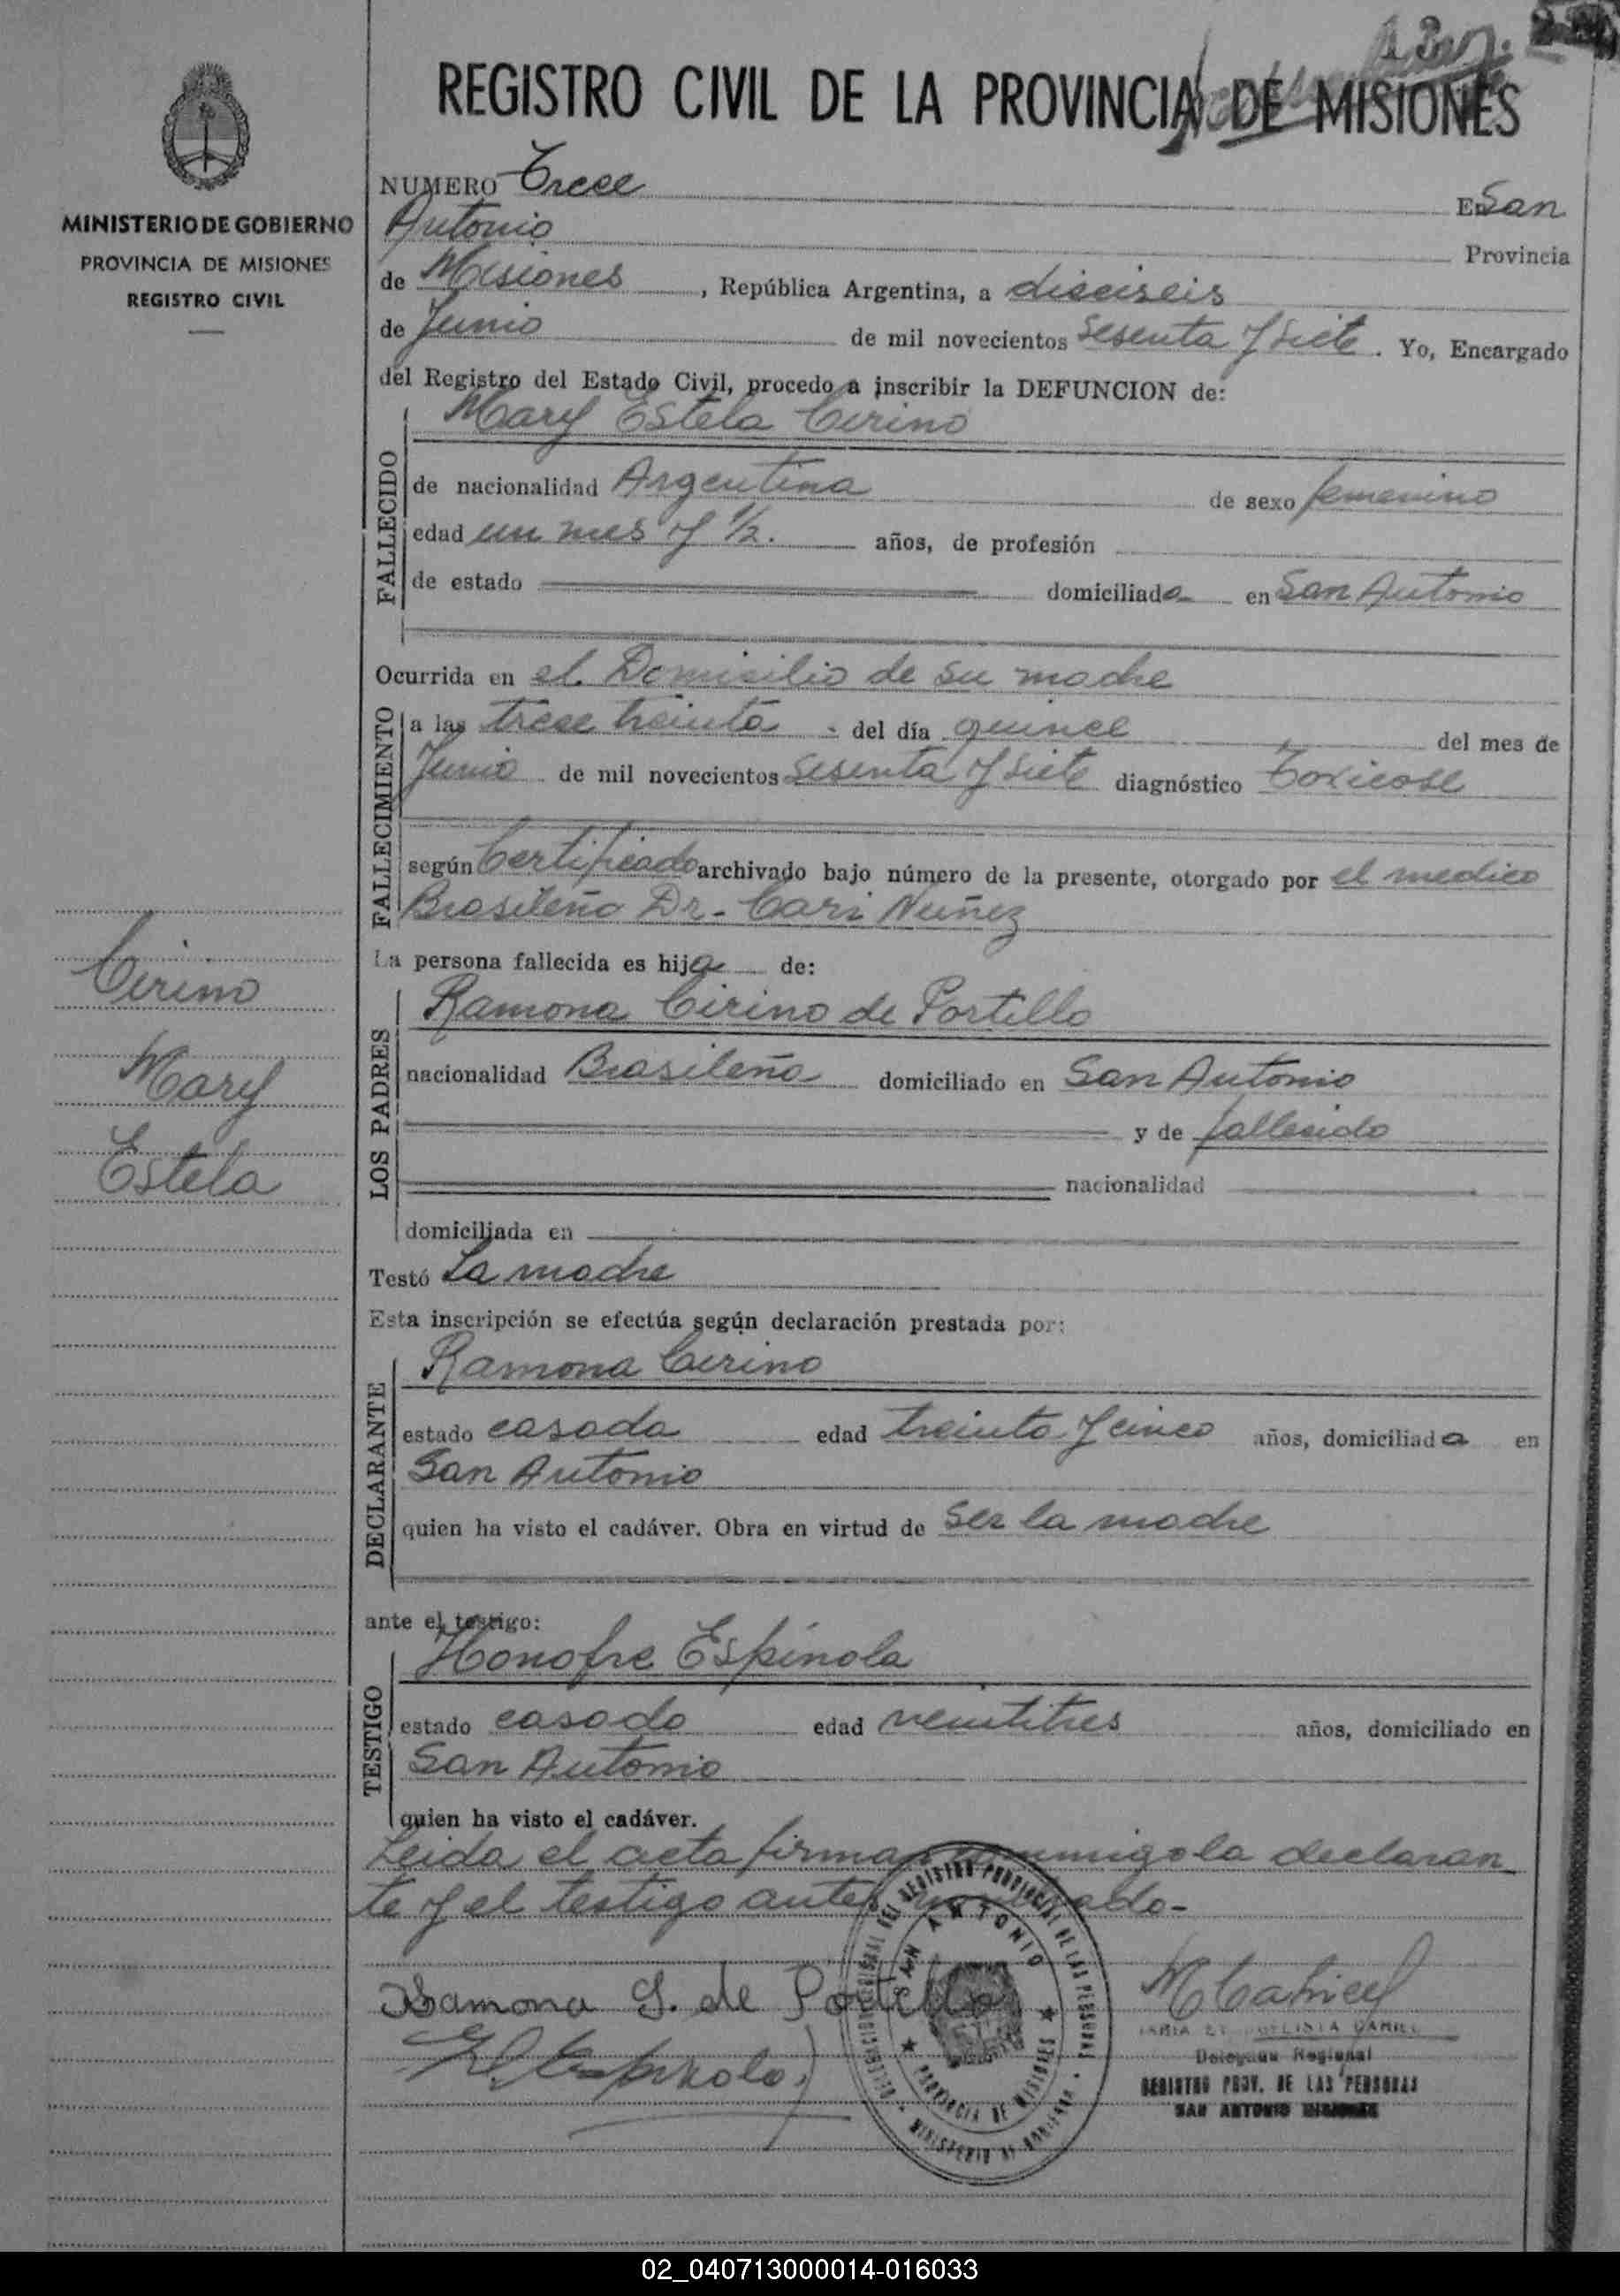 REGISTRO CIVIL DE LA PROVINCIA DE MISIONES
MINISTERIO DE GOBIERNO
PROVINCIA DE MISIONES
REGISTRO CIVIL
NUMERO Trece En San
Antonio Provincia
de Misiones, República Argentina, a dieciseis
de Junio de mil novecientos Sesenta y Siete. Yo, Encargado
del Registro del Estado Civil, procedo a inscribir la DEFUNCION de:
FALLECIDO
Mary Estela Cirino
de nacionalidad Argentina de sexo femenino
edad un mes y 1/2. años, de profesión
de estado domiciliada en San Antonio
Ocurrida en el Domisilio de su madre
FALLECIMIENTO
a las trese treinta del día quince del mes de
Junio de mil novecientos Sesenta y Siete diagnóstico Toxicose
según Certificado archivado bajo número de la presente, otorgado por el medico
Brasileño Dr. Cari Nuñez
La persona fallecida es hija de:
LOS PADRES
Ramona Cirino de Portillo
nacionalidad Brasileña domiciliado en San Antonio
y de fallesido
nacionalidad
domiciliada en
Testó La madre
Esta inscripción se efectúa según declaración prestada por:
DECLARANTE
Ramona Cirino
estado casada edad treinta y cinco años, domiciliada en
San Antonio
quien ha visto el cadáver. Obra en virtud de Ser la madre
ante el testigo:
TESTIGO
Honofre Espinola
estado casado edad veintitres años, domiciliado en
San Antonio
quien ha visto el cadáver.
Leida el acta firman conmigo la declaran
te y el testigo antes
Cirino
Mary
Estela
Ramona S. de Portillo
SAN ANTONIO
PROVINCIA DE MISIONES
MINISTERIO DE GOBIERNO
Delegada Regional
REGISTRO PROV. DE LAS PERSONAS
SAN ANTONIO MISIONES
02_040713000014-016033